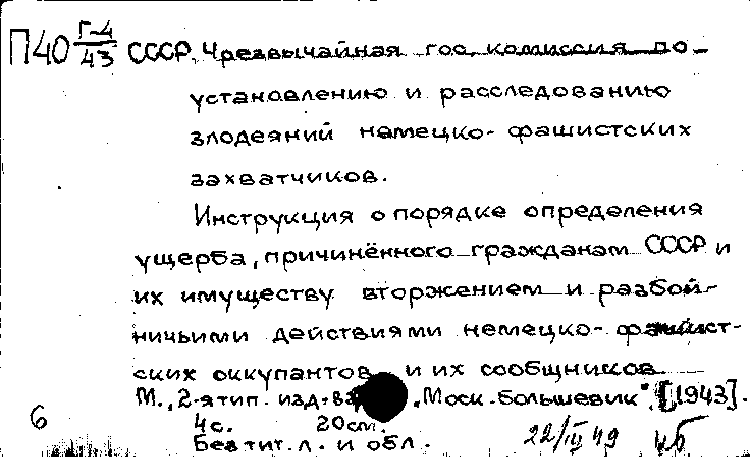 П40 Г-4/43 СССР. Чрезвычайная гос. комиссия по
установлению и расследованию
злодеяний немецко-фашистских
захватчиков.
Инструкция о порядке определения
ущерба, причинённого гражданам СССР и
их имуществу вторжением и разбой-
ничьими действиями немецко-фашист-
ских оккупантов и их сообщников
М., 2-я тип. изд-ва „Моск. большевик“, [1943].
6 4с. 20см.
Без тит. л. и обл. 22/III 49